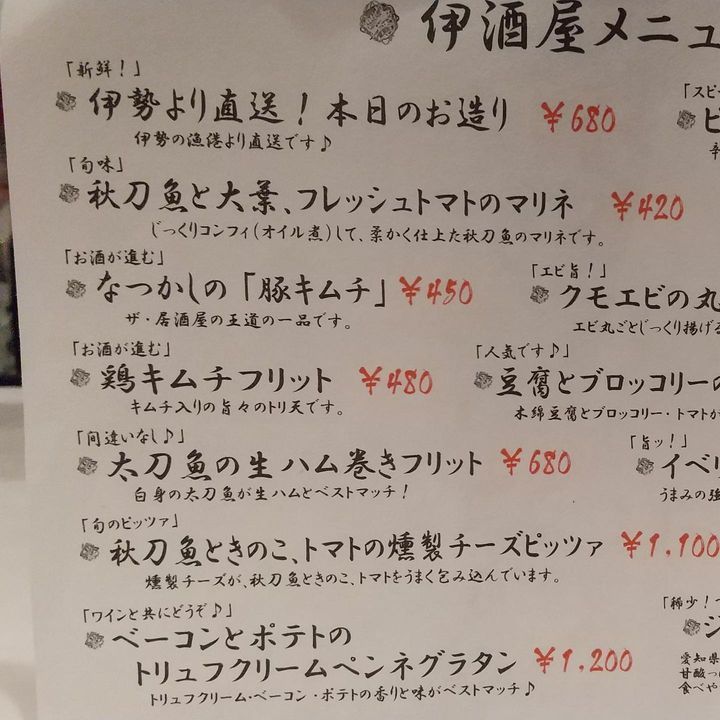 伊酒屋メニュ
「新鮮！」
伊勢より直送！本日のお造り ¥680
伊勢の漁港より直送です♪
「旬味」
秋刀魚と大葉、フレッシュトマトのマリネ ¥420
じっくりコンフィ(オイル煮)して、柔かく仕上た秋刀魚のマリネです。
「お酒が進む」
なつかしの「豚キムチ」 ¥450
ザ・居酒屋の王道の一品です。
「お酒が進む」
鶏キムチフリット ¥480
キムチ入りの旨々のトリ天です。
「間違いなし♪」
太刀魚の生ハム巻きフリット ¥680
白身の太刀魚が生ハムとベストマッチ！
「旬のピッツァ」
秋刀魚ときのこ、トマトの燻製チーズピッツァ ¥1,100
燻製チーズが、秋刀魚ときのこ、トマトをうまく包み込んでいます。
「ワインと共にどうぞ♪」
ベーコンとポテトの
トリュフクリームペンネグラタン ¥1,200
トリュフクリーム・ベーコン・ポテトの香りと味がベストマッチ♪
「スピ
ピ
辛
「エビ旨！」
クモエビの丸
エビ丸ごとじっくり揚げる
「人気です♪」
豆腐とブロッコリーの
木綿豆腐とブロッコリー・トマトが
「旨ッ！」
イベリ
うまみの強
「稀少！
ジ
愛知県
甘酸っ
食べや